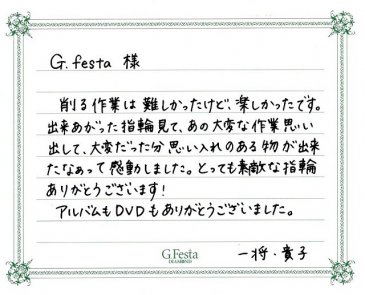 G.festa 様
削る作業は難しかったけど、楽しかったです。
出来あがった指輪見て、あの大変な作業思い
出して、大変だった分思い入れのある物が出来
たなぁって感動しました。とっても素敵な指輪
ありがとうございます!
アルバムもDVDもありがとうございました。
G.Festa
DIAMOND
一将・貴子